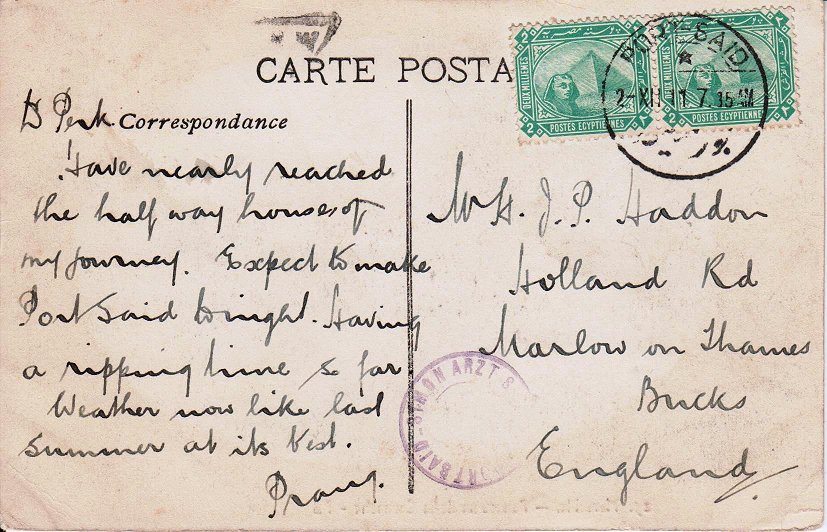 CARTE POSTA
Correspondance
D Perk
Have nearly reached
the half way house of
my journey. Expect to make
Port Said tonight. Having
a ripping time so far
Weather now like last
summer at its best.
DEUX MILLIEMES
POSTES EGYPTIENNES
2 2
DEUX MILLIEMES
POSTES EGYPTIENNES
2 2
PORT-SAID
2-XII 11 7.15 AM
J. P. Haddon
Holland Rd
Marlow on Thames
Bucks
England
SIMON ARZT &
PORT SAID